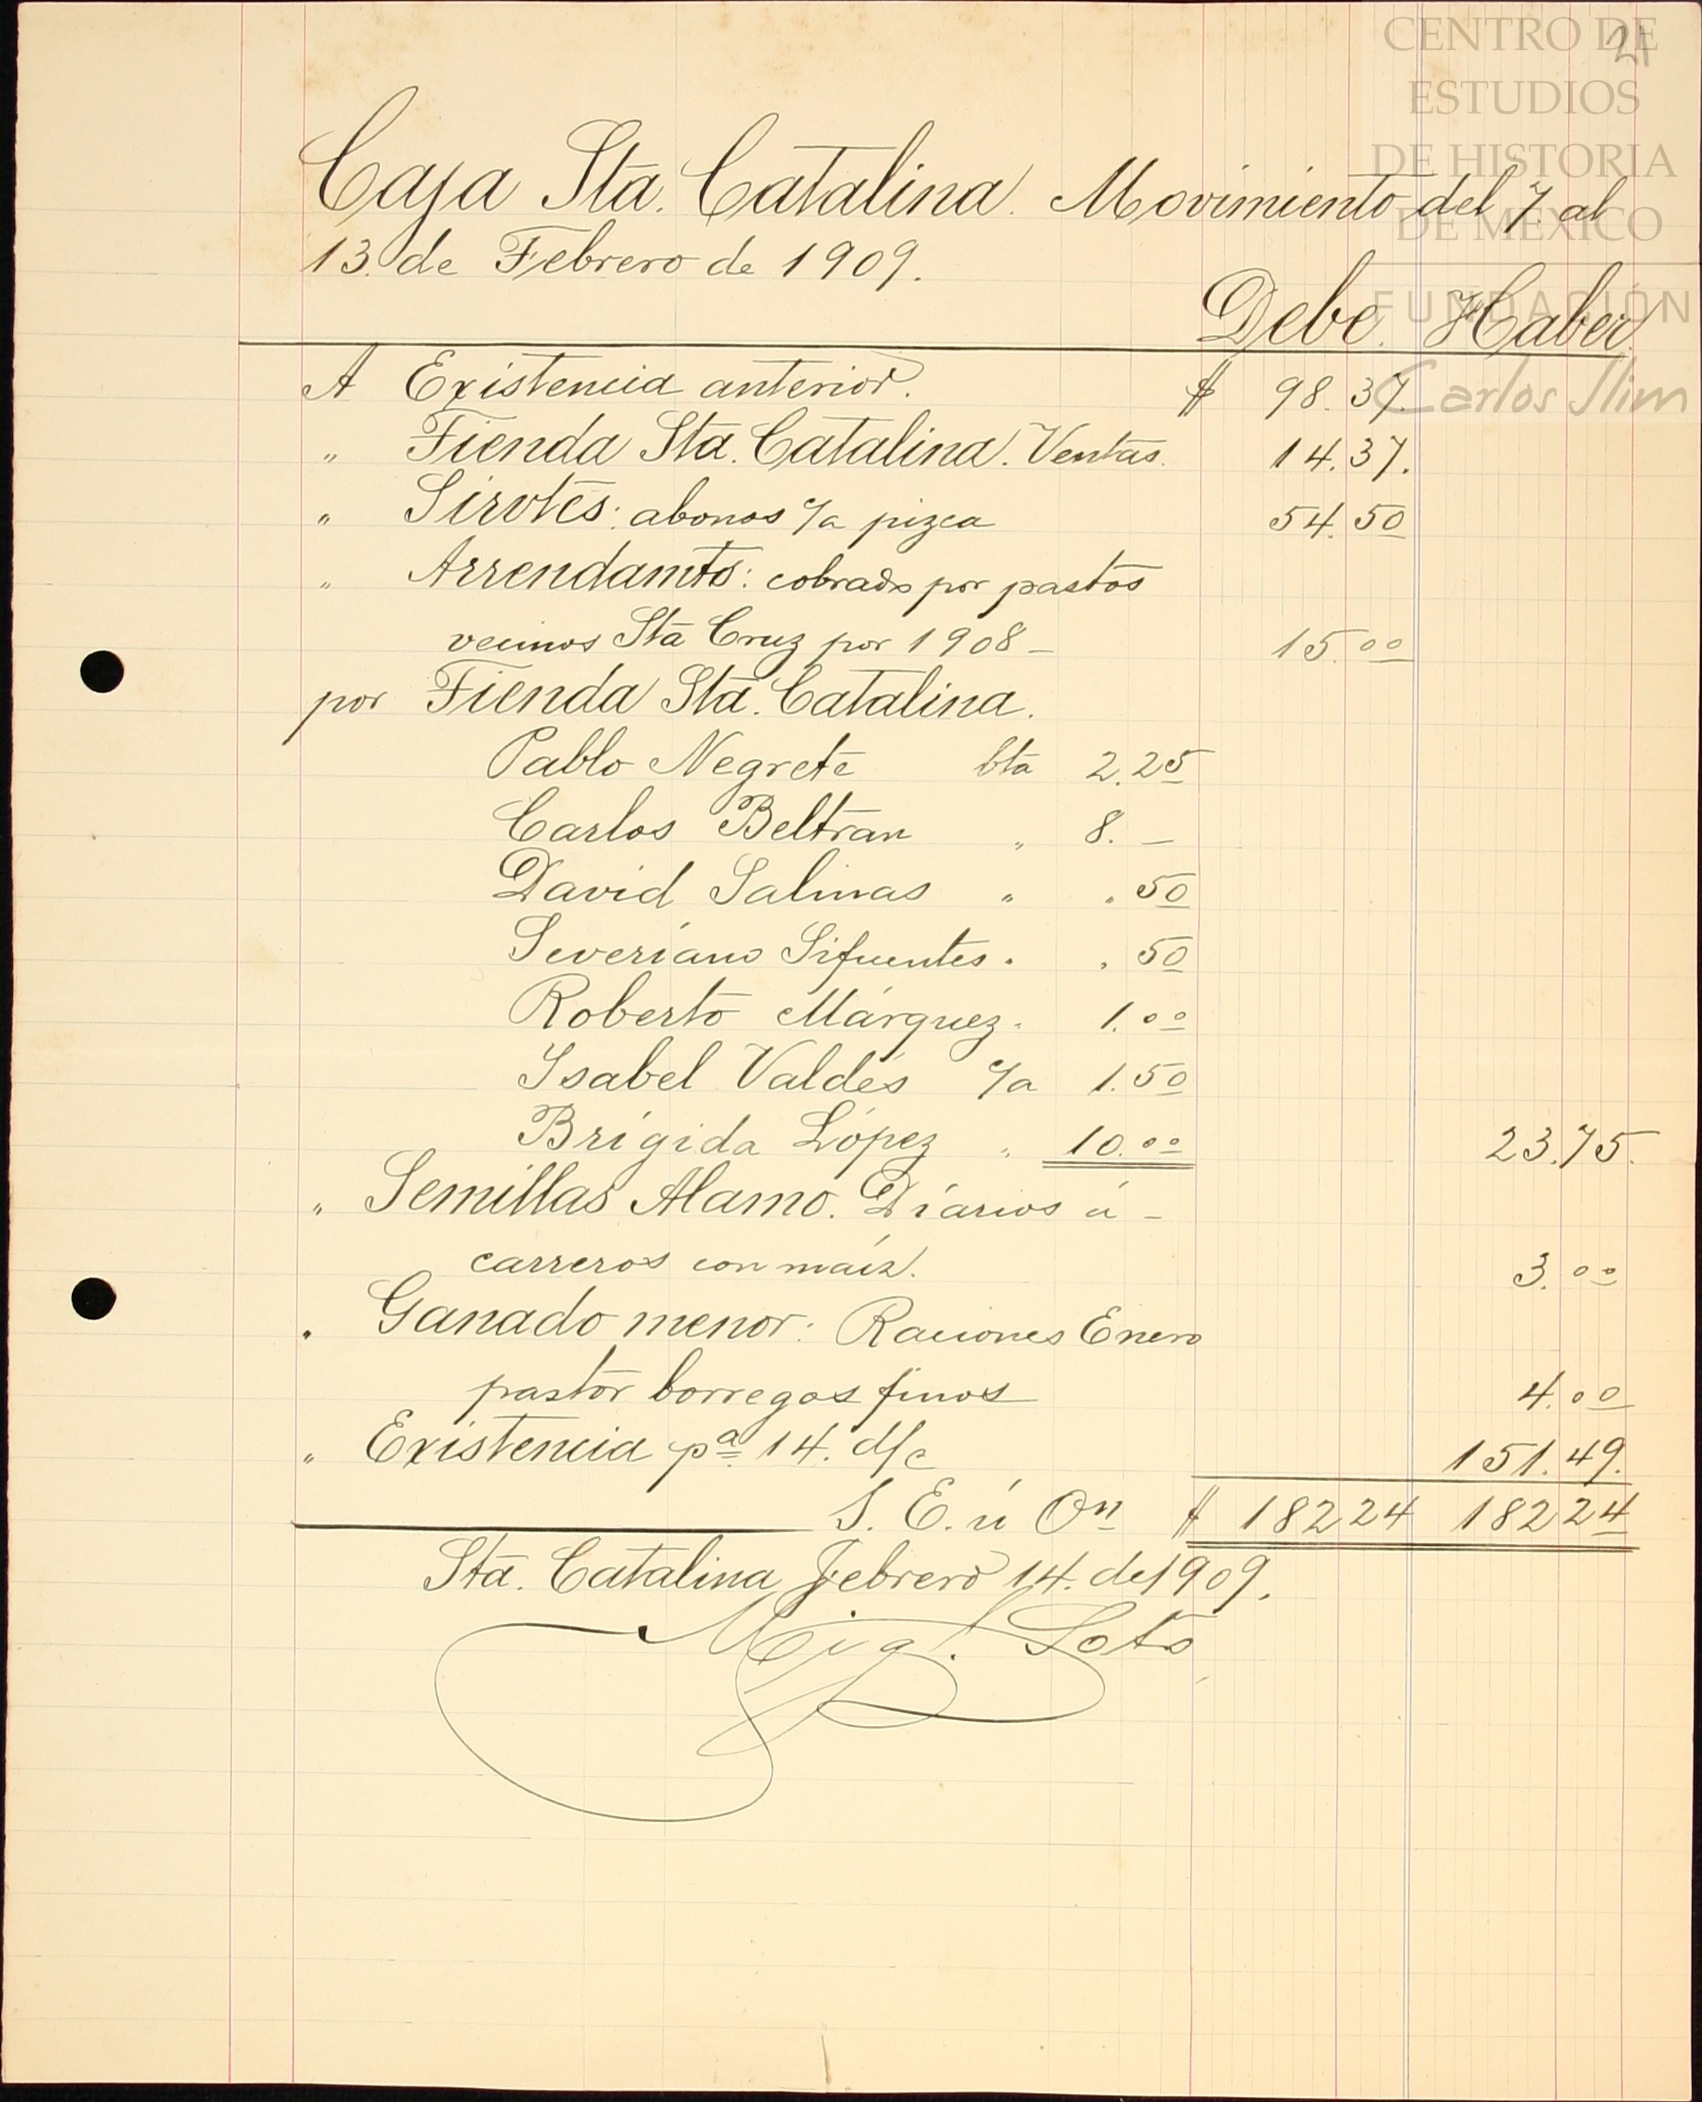 CENTRO DE
ESTUDIOS
DE HISTORIA
DE MÉXICO
FUNDACIÓN
Carlos Slim
21
Caja Sta. Catalina. Movimiento del 7. al
13. de Febrero de 1909.
Debe. Haber.
A Existencia anterior. $ 98.37.
" Tienda Sta. Catalina. Ventas. 14.37.
" Sirvtes: abonos c/a pizca 54.50
" Arrendamto: cobrado por pastos
vecinos Sta Cruz por 1908 — 15.00
por Tienda Sta. Catalina.
Pablo Negrete bta 2.25
Carlos Beltran " 8. —
David Salinas " . 50
Severiano Sifuentes " . 50
Roberto Márquez " 1.00
Ysabel Valdés c/a 1.50
Brígida López " 10.00 23.75.
" Semillas Alamo. Diarios á —
carreros con maíz. 3.00
" Ganado menor: Raciones Enero
pastor borregos finos 4.00
" Existencia pa. 14. d/c 151.49.
S. E. ú On $ 18224 18224
Sta. Catalina, Febrero 14. de 1909.
Migl. Soto